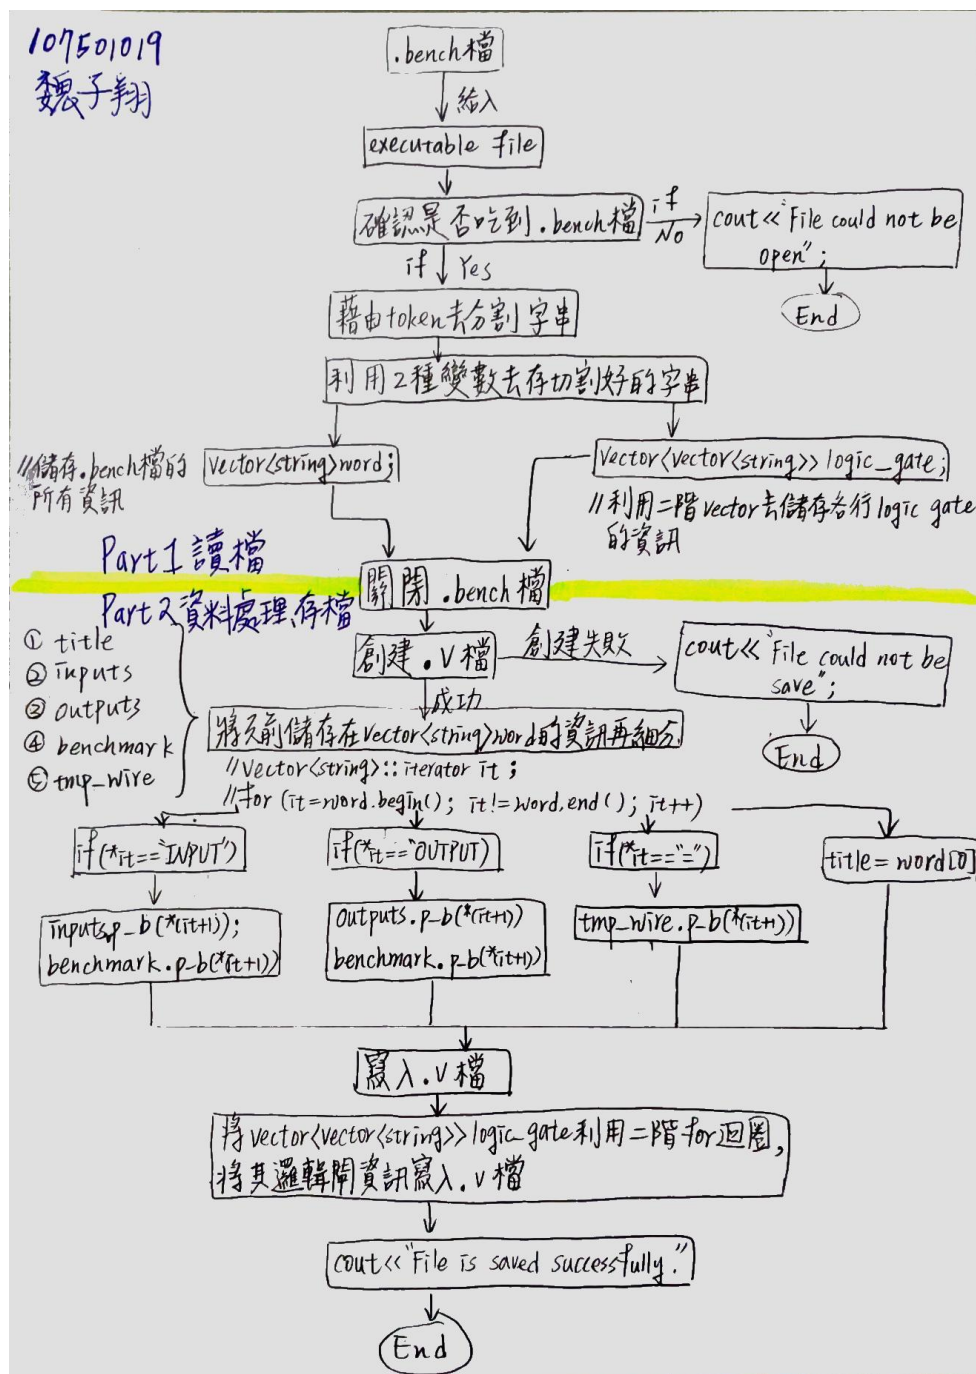 107501019
魏子翔
.bench檔
給入
executable file
確認是否吃到.bench檔
if
No
cout<<"File could not be
open";
End
if Yes
藉由token去分割字串
利用2種變數去存切割好的字串
//儲存.bench檔的
所有資訊
vector<string>word;
vector<vector<string>>logic_gate;
//利用二階vector去儲存各行logic gate
的資訊
Part1讀檔
關閉.bench檔
Part2資料處理、存檔
① title
② inputs
③ outputs
④ benchmark
⑤ tmp_wire
創建.v檔
創建失敗
cout<<"File could not be
save";
End
成功
將先前儲存在vector<string>word的資訊再細分.
//vector<string>::iterator it;
//for(it=word.begin(); it!=word.end(); it++)
if(*it=="INPUT")
if(*it=="OUTPUT)
if(*it=="=")
title=word[0]
inputs.p_b(*(it+1));
benchmark.p_b(*(it+1))
outputs.p_b(*(it+1))
benchmark.p_b(*(it+1))
tmp_wire.p_b(*(it+1))
寫入.v檔
將vector<vector<string>>logic_gate利用二階for迴圈,
將其邏輯閘資訊寫入.v檔
cout<<"File is saved successfully."
End